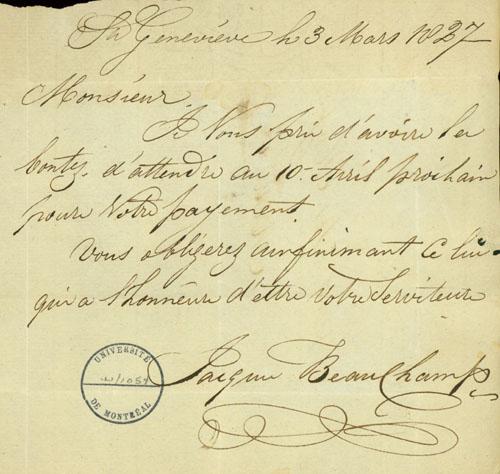 Ste Geneviève le 3 Mars 1837
Monsieur
Je Vous prie d'avoire la
bontez d'attendre au 10 Avril prochain
poure Votre payement.
Vous obligerez aunfinimant Ce lui
qui a l'honneure d'ettre Votre Serviteure
Jacque BeauChamp
UNIVERSITÉ
DE MONTRÉAL